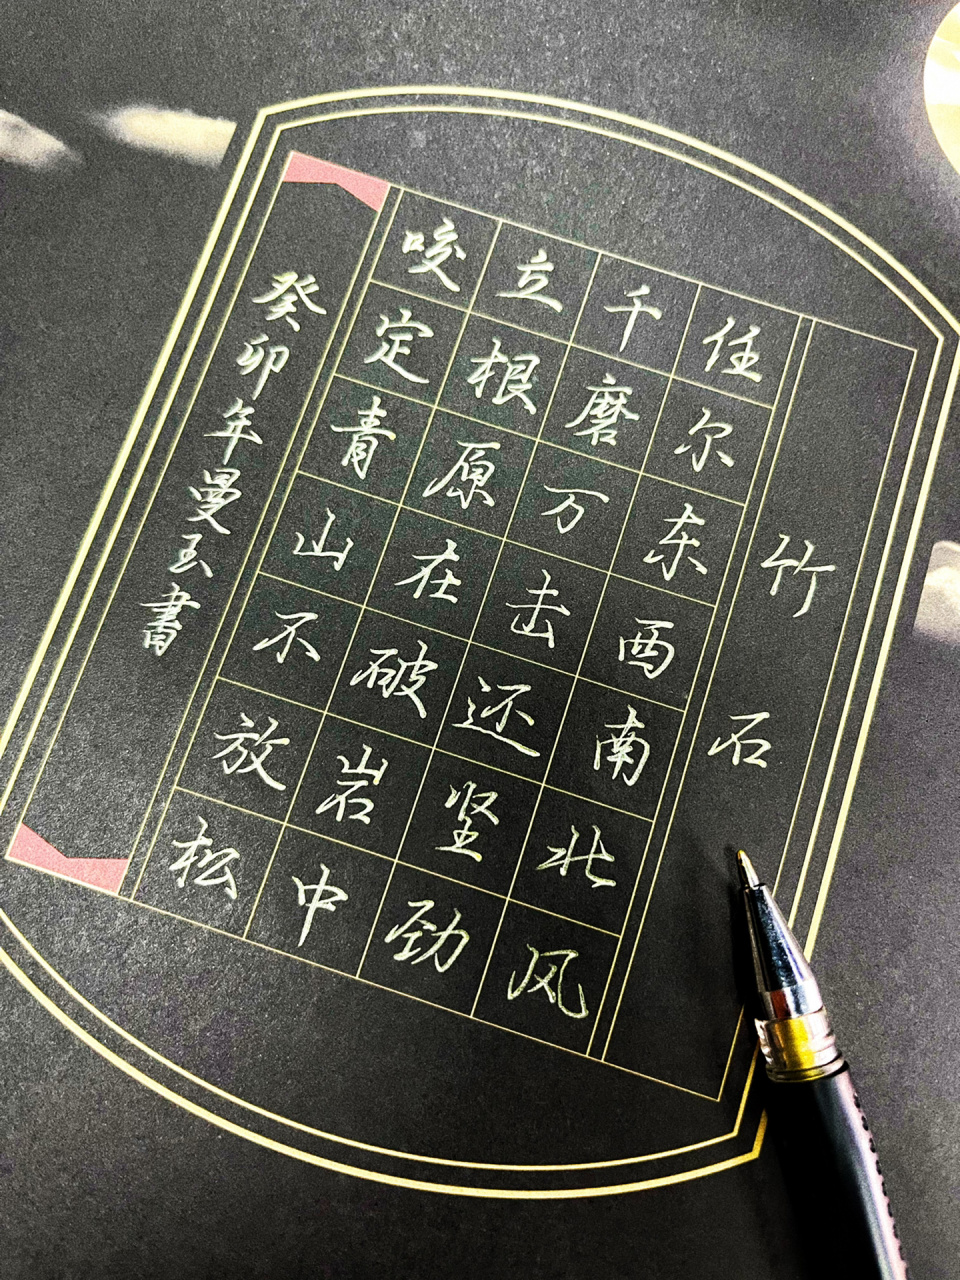 竹石
咬定青山不放松
立根原在破岩中
千磨万击还坚劲
任尔东西南北风
癸卯年曼玉書